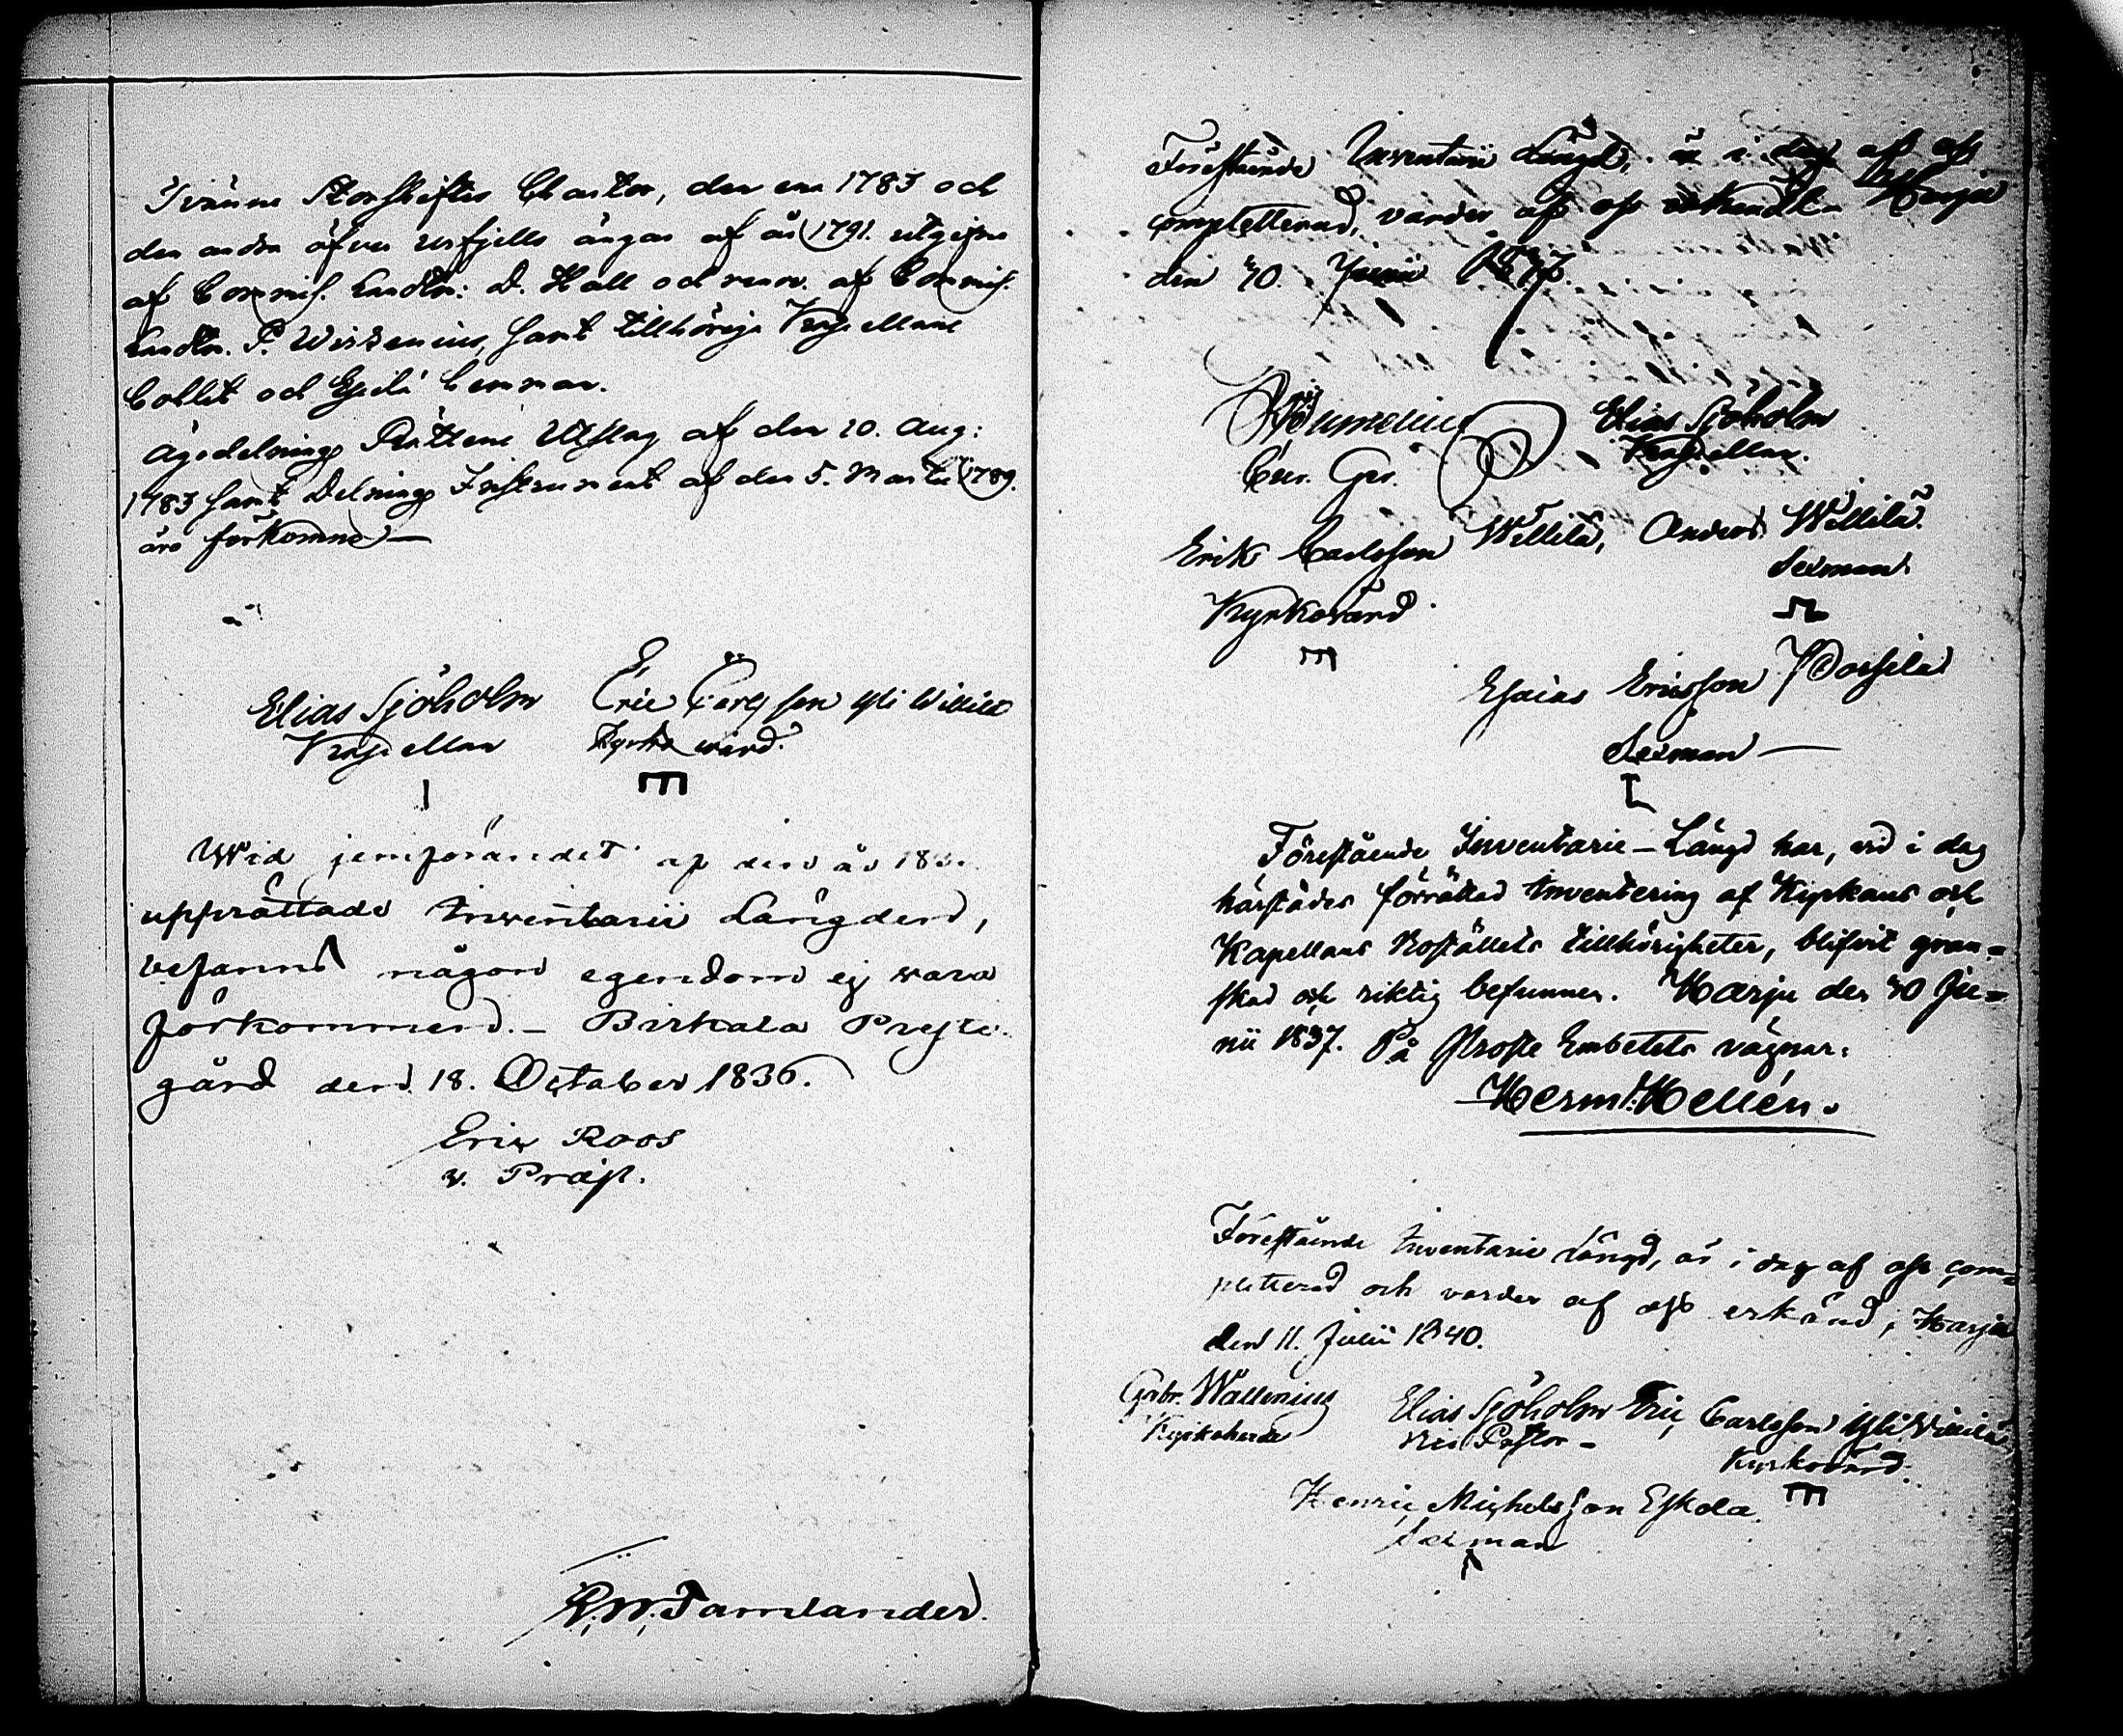 Tvänne Storskiftes Chartor, den ena 1783 och
den andra öfver utfjells ängar af år 1791. utgifne
af Commiss. Landtm: D. Hall och renov. af Commiss.
Landtm. P. Wirzenius, samt tillhörige Kapellans
Bohlet och Hemman.
Ägodelnings Rättens Utslag af den 20. Aug:
1783 samt Delnings Instrument af den 5. Martii 1789.
äro förkomne —
Elias Sjöholm Eric Carlsson Yli Willilä
Kapellan Kyrko wärd.
Wid jemförandet af den år
upprättade Inventarii Längden,
befanns någon egendom ej vara
förkommen. — Birkala Preste-
gård den 18. October 1836.
Eric Roos
v. Præp.
Tamlander.
Förestående Inventarii Längd, är i dag af oss
completterad, varder af oss Harju
den 30. Junii 1837.
Elias Sjöholm
Kapellan.
Erik Carlsson Willilä, Anders Willilä
Sexman.
Kyrkovärd.
Esaias Ericsson
Sexman —
Förestående Inventarie-Längd har, vid i dag
härstädes förrättad Inventering af Kyrkans och
Kapellans Boställets tillhörigheter, blifvit gran=
skad och riktig befunnen. Harju den 30 Ju=
nii 1837. På Prosts Embetets vägnar:
Herm: Hellén.
Förestående Inventarie Längd, är i dag af oss com=
pletterad och varder af oss erkänd, Harju
den 11. Julii 1840.
Gabr. Wallenius Elias Sjöholm Eric Carlsson Yli Willilä
Kyrkoherde Vice Pastor — Kyrkovärd.
Henric Michelsson Eskola
Sexman